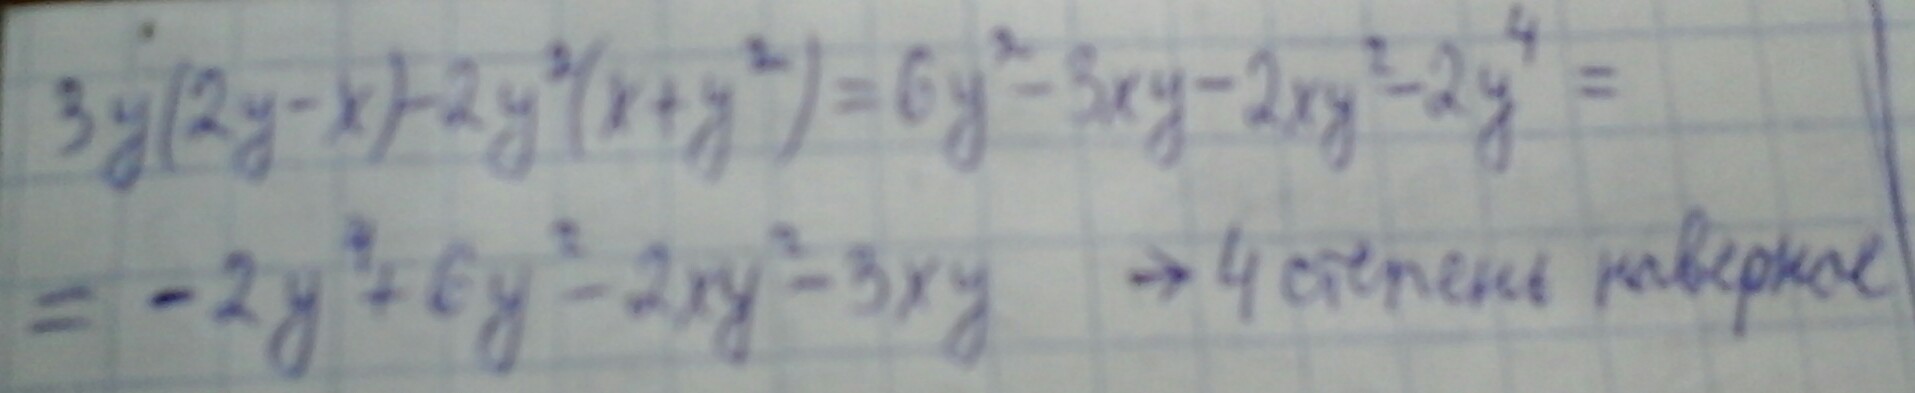 3y(2y-x)-2y²(x+y²)=6y²-3xy-2xy²-2y⁴=
= -2y⁴+6y²-2xy²-3xy → 4 степень наверное